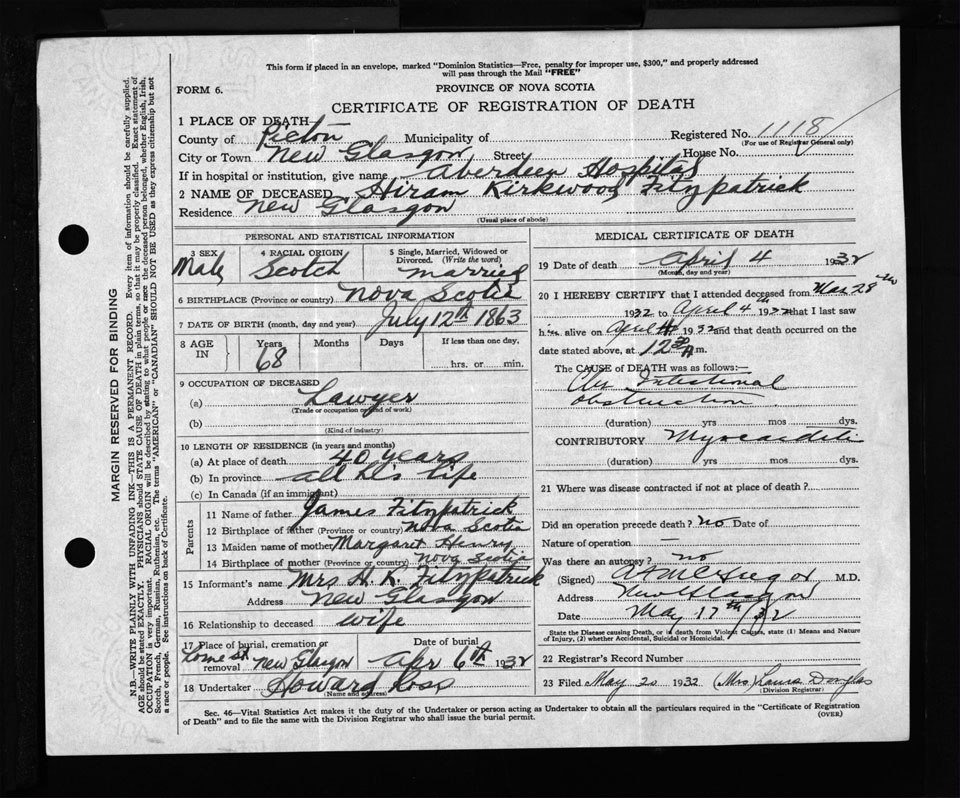 This form if placed in an envelope, marked "Dominion Statistics—Free, penalty for improper use, $300," and properly addressed
will pass through the Mail "FREE"
FORM 6.
PROVINCE OF NOVA SCOTIA
CERTIFICATE OF REGISTRATION OF DEATH
1 PLACE OF DEATH
County of Pictou Municipality of Registered No. 1118
(For use of Registrar General only)
City or Town New Glasgow Street House No.
If in hospital or institution, give name Aberdeen Hospital
2 NAME OF DECEASED Hiram Kirkwood Fitzpatrick
Residence New Glasgow
(Usual place of abode)
PERSONAL AND STATISTICAL INFORMATION
3 SEX Male
4 RACIAL ORIGIN Scotch
5 Single, Married, Widowed or Divorced. (Write the word) married
6 BIRTHPLACE (Province or country) Nova Scotia
7 DATE OF BIRTH (month, day and year) July 12th 1863
8 AGE IN Years 68 Months Days If less than one day,
hrs. or min.
9 OCCUPATION OF DECEASED
(a) Lawyer
(Trade or occupation or kind of work)
(b)
(Kind of industry)
10 LENGTH OF RESIDENCE (in years and months)
(a) At place of death 40 years
(b) In province all his life
(c) In Canada (if an immigrant)
Parents
11 Name of father James Fitzpatrick
12 Birthplace of father (Province or country) Nova Scotia
13 Maiden name of mother Margaret Henry
14 Birthplace of mother (Province or country) Nova Scotia
15 Informant's name Mrs H. K. Fitzpatrick
Address New Glasgow
16 Relationship to deceased wife
17 Place of burial, cremation or removal Lorne St New Glasgow
Date of burial Apr 6th 1932
18 Undertaker Howard Ross
(Name and address)
MEDICAL CERTIFICATE OF DEATH
19 Date of death April 4 1932
(Month, day and year)
20 I HEREBY CERTIFY that I attended deceased from Mar 28th
1932 to April 4th 1932 that I last saw
h im alive on April 4 1932 and that death occurred on the
date stated above, at 12 30 A m.
The CAUSE of DEATH was as follows:—
Intestinal
obstruction
(duration) yrs mos dys.
CONTRIBUTORY Myocarditis
(duration) yrs mos dys.
21 Where was disease contracted if not at place of death?
Did an operation precede death? no Date of
Nature of operation —
Was there an autopsy? no
(Signed) McGregor M.D.
Address New Glasgow
Date May 17th/32
State the Disease causing Death, or in death from Violent Causes, state (1) Means and Nature of Injury, (2) whether Accidental, Suicidal or Homicidal.
22 Registrar's Record Number
23 Filed May 20 1932 (Mrs) Laura Douglas
(Division Registrar)
Sec. 46—Vital Statistics Act makes it the duty of the Undertaker or person acting as Undertaker to obtain all the particulars required in the "Certificate of Registration
of Death" and to file the same with the Division Registrar who shall issue the burial permit.
(OVER)
MARGIN RESERVED FOR BINDING
N.B.—WRITE PLAINLY WITH UNFADING INK—THIS IS A PERMANENT RECORD. Every item of information should be carefully supplied.
AGE should be stated EXACTLY. PHYSICIANS should STATE CAUSE OF DEATH in plain terms, so that it may be properly classified. Exact statement of
OCCUPATION is very important. RACIAL ORIGIN will be described by stating to what people or race the deceased person belonged, whether English, Irish,
Scotch, French, German, Russian, Ruthenian, etc. The terms "AMERICAN" or "CANADIAN" SHOULD NOT BE USED as they express citizenship but not
a race or people. See instructions on back of Certificate.